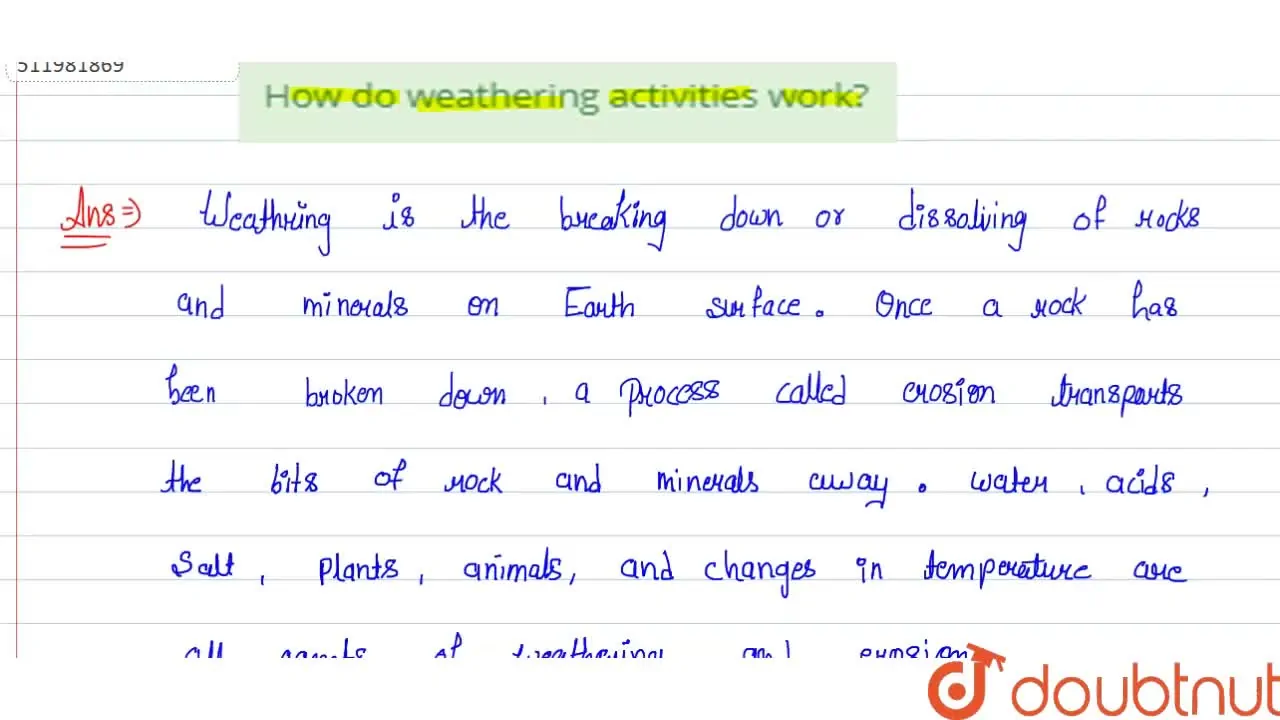 511981869
How do weathering activities work?
Ans⇒ Weathring is the breaking down or dissolving of rocks
and minerals on Earth surface. Once a rock has
been broken down, a process called erosion transports
the bits of rock and minerals away. water, acids,
salt, plants, animals, and changes in temperature are
all agents of weathering and erosion
doubtnut